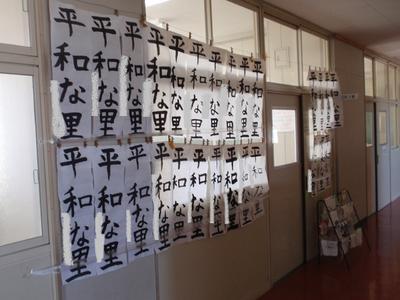 平和な里
平和な里
平和な里
平和な里
平和な里
平和な里
平和な里
平和な里
平和な里
平和な里
平和な里
平和な里
平和な里
平和な里
平和な里
平和な里
平和な里
平和な里
平和な里
平和な里
平和な里
平和な里
平和な里
平和な里